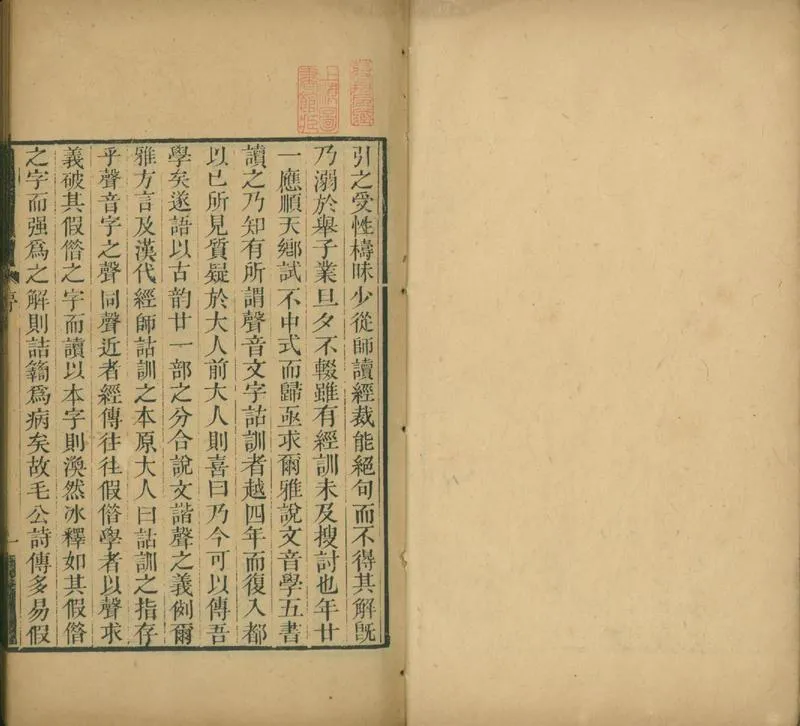 引之受性檮昧少從師讀經裁能絕句而不得其解旣
乃溺於舉子業旦夕不輟雖有經訓未及搜討也年廿
一應順天鄉試不中式而歸亟求爾雅說文音學五書
讀之乃知有所謂聲音文字詁訓者越四年而復入都
以己所見質疑於大人前大人則喜曰乃今可以傳吾
學矣遂語以古韵廿一部之分合說文諧聲之義例爾
雅方言及漢代經師詁訓之本原大人曰詁訓之指存
乎聲音字之聲同聲近者經傳往往假借學者以聲求
義破其假借之字而讀以本字則渙然冰釋如其假借
之字而强爲之解則詰𥷚爲病矣故毛公詩傳多易假
序
一
上海圖書館藏